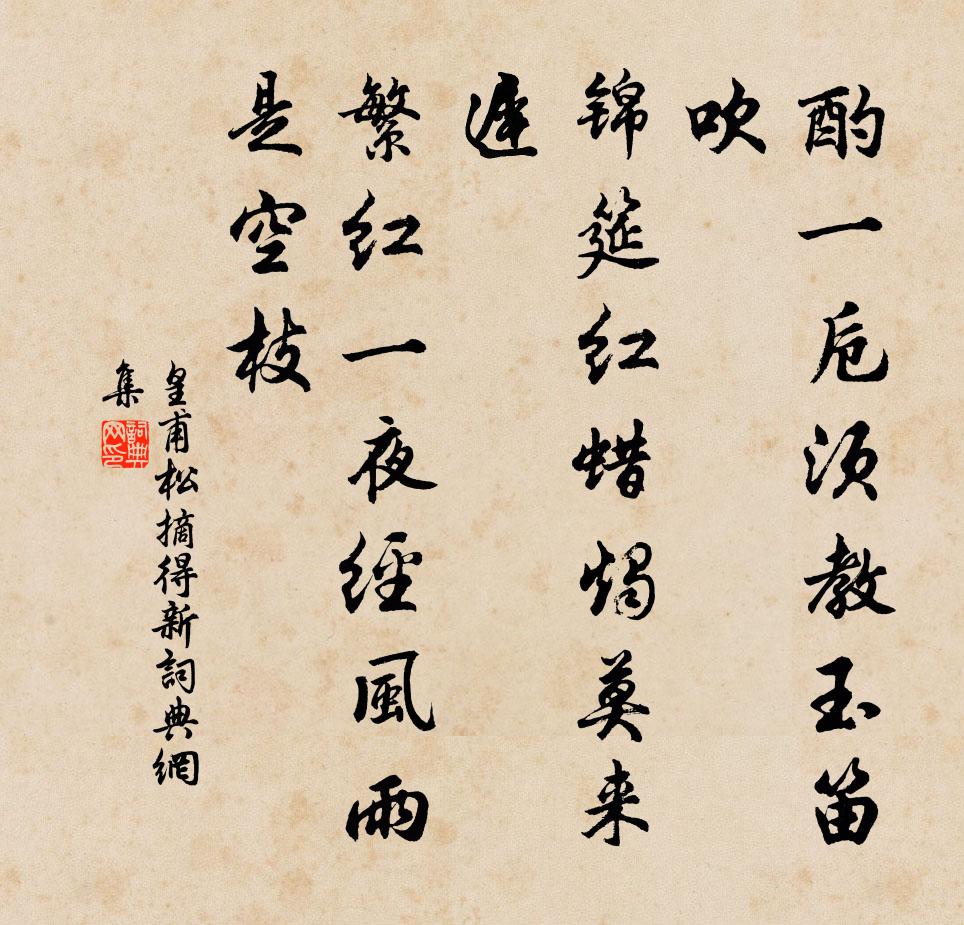 酌一卮须教玉笛
吹
锦筵红蜡烛莫来
遲
繁红一夜經風雨
是空枝
皇甫松摘得新詞典網
集
詞典
网印